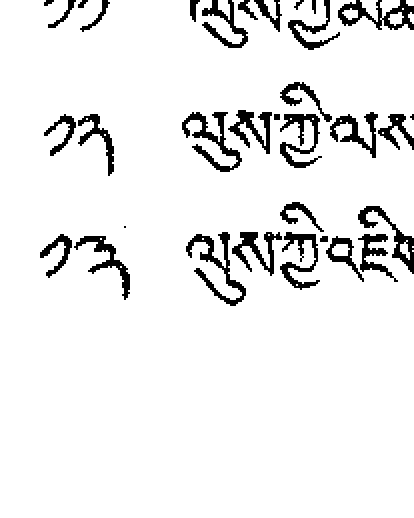 ༡༡ ལུས་ཀྱི་མཚ
༡༢ ལུས་ཀྱི་ལས
༡༣ ལུས་ཀྱི་འཇིག